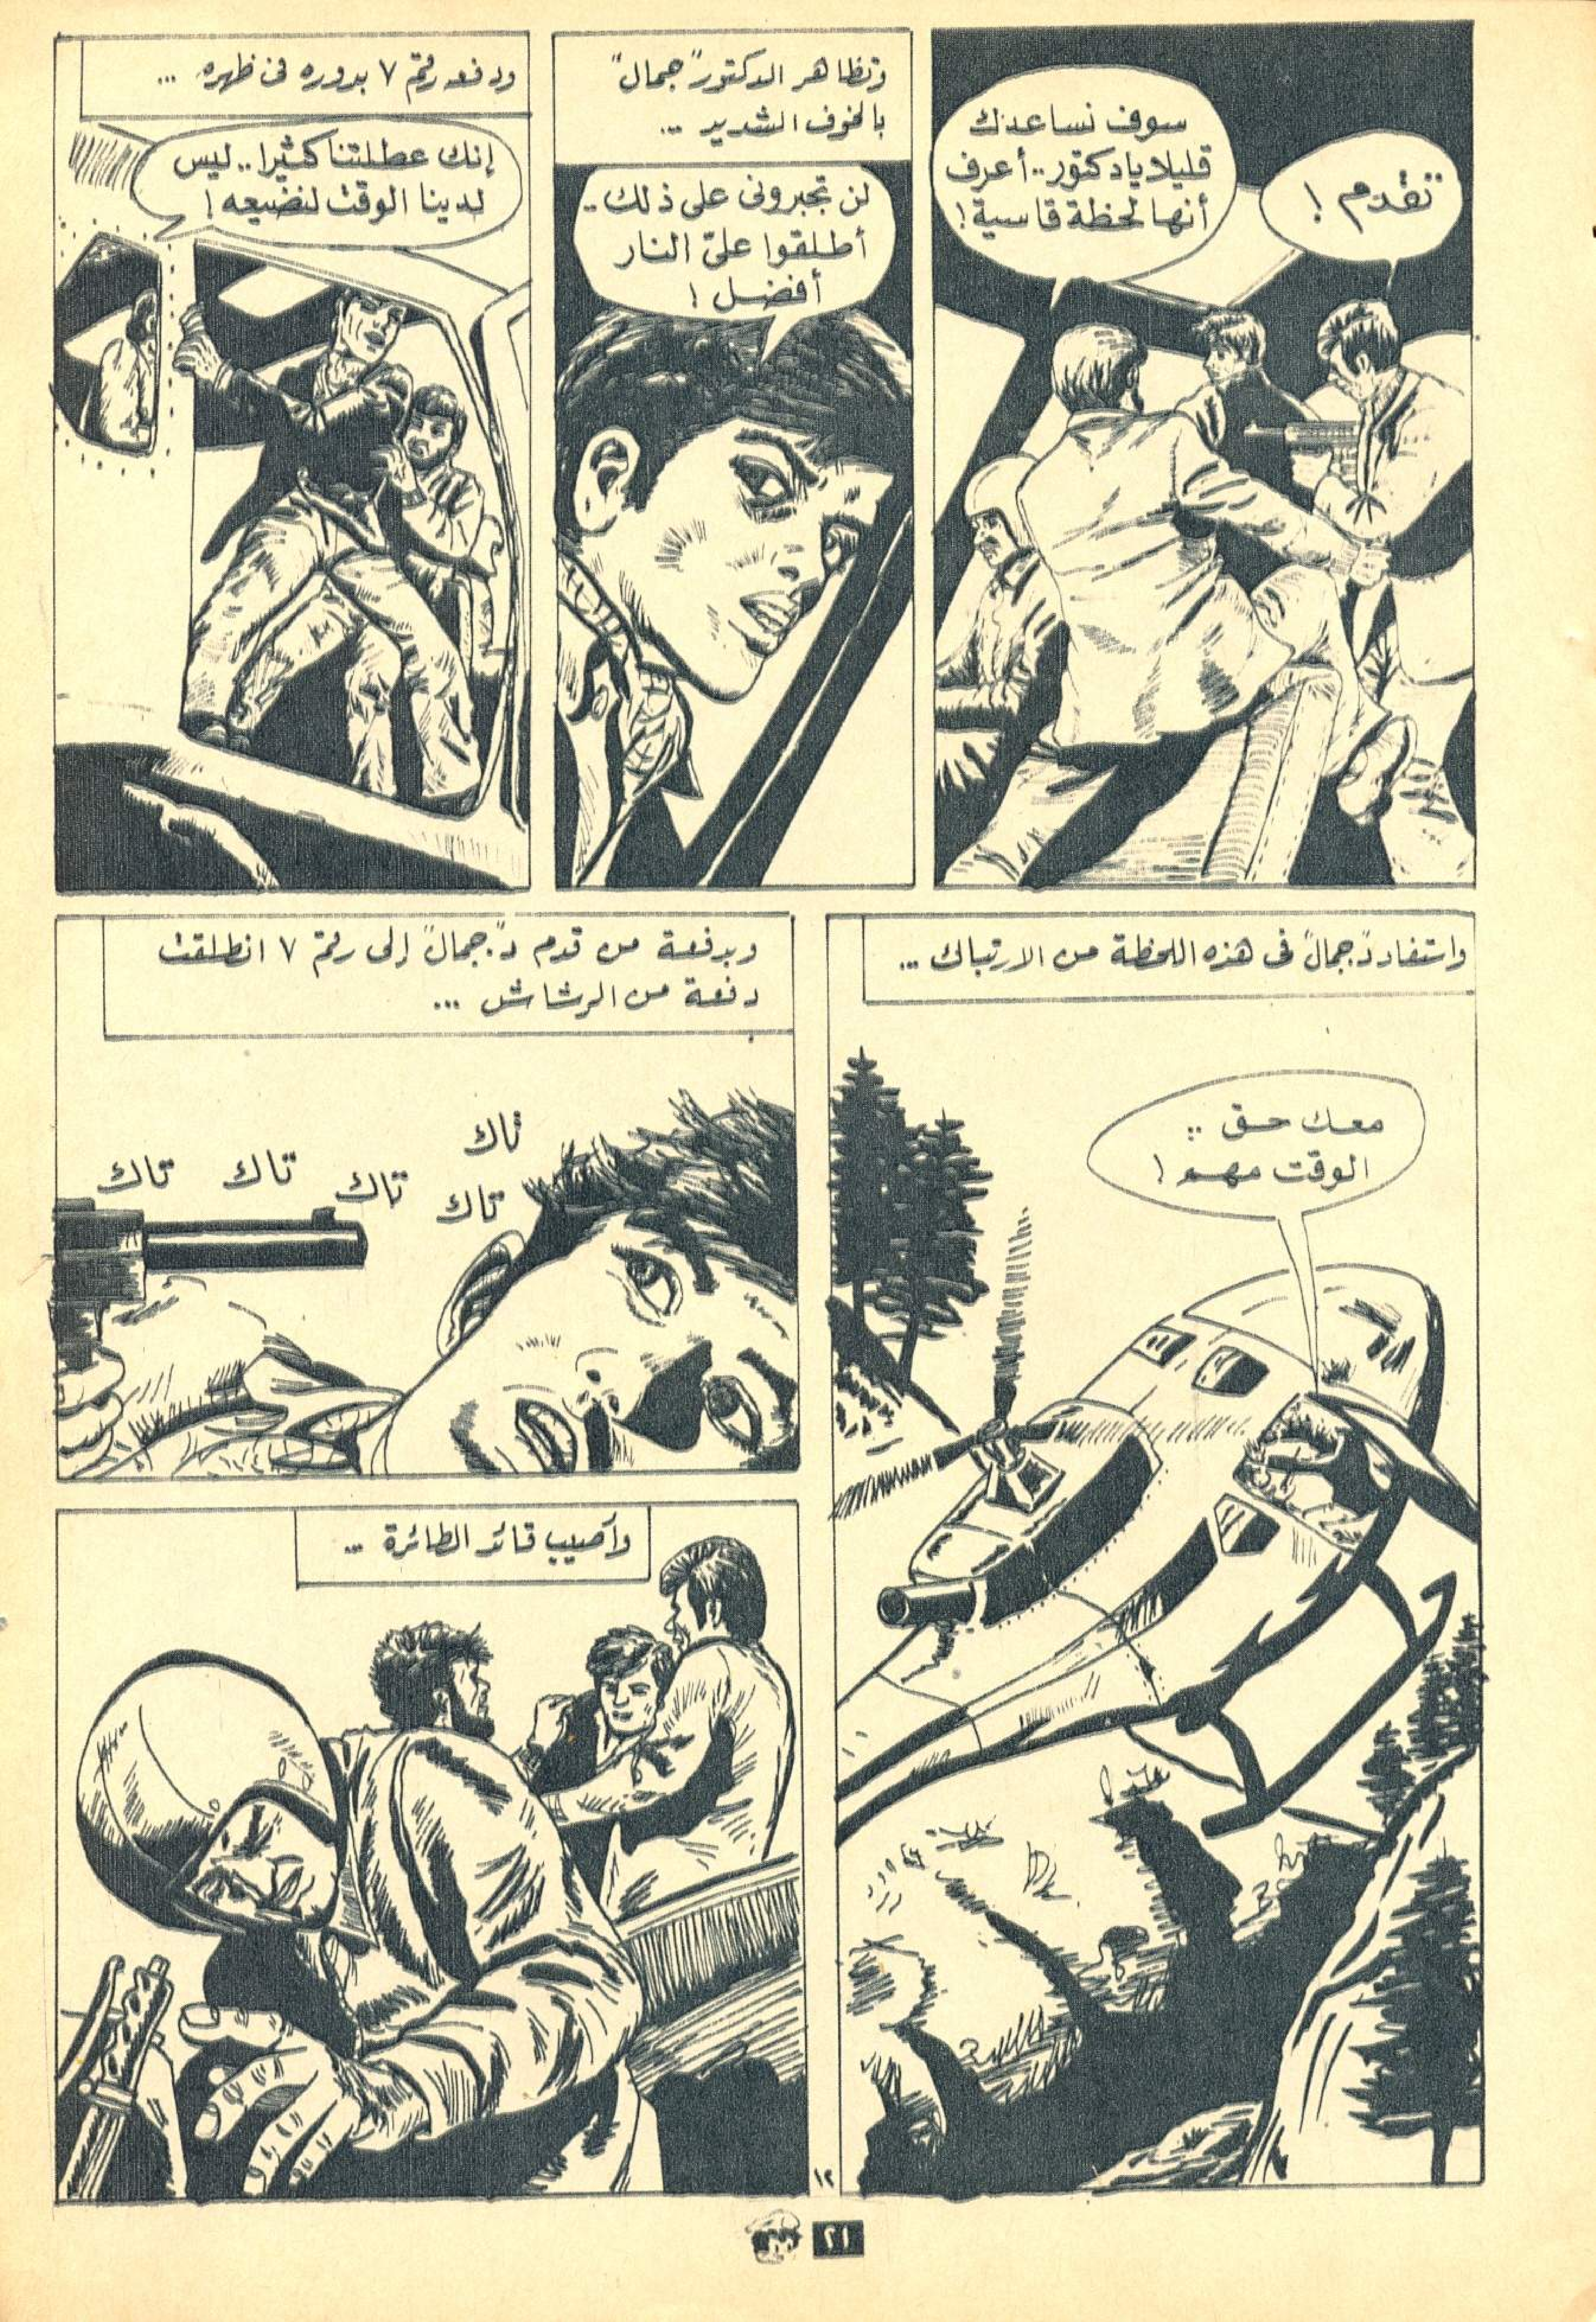 تقدم !
سوف نساعدك
قليلا يا دكتور .. أعرف
أنها لحظة قاسية !
وتظاهر الدكتور "جمال"
بالخوف الشديد ...
لن تجبرونى على ذلك ..
أطلقوا علىّ النار
أفضل !
ودفعه رقم ٧ بدوره فى ظهره ...
إنك عطلتنا كثيرا .. ليس
لدينا الوقت لنضيعه !
واستفاد د."جمال" فى هذه اللحظة من الارتباك ...
معك حق ..
الوقت مهم !
وبدفعة من قدم د."جمال" إلى رقم ٧ انطلقت
دفعة من الرشاش ...
تاك
تاك تاك تاك تاك
وأصيب قائد الطائرة ...
١٢
٢١